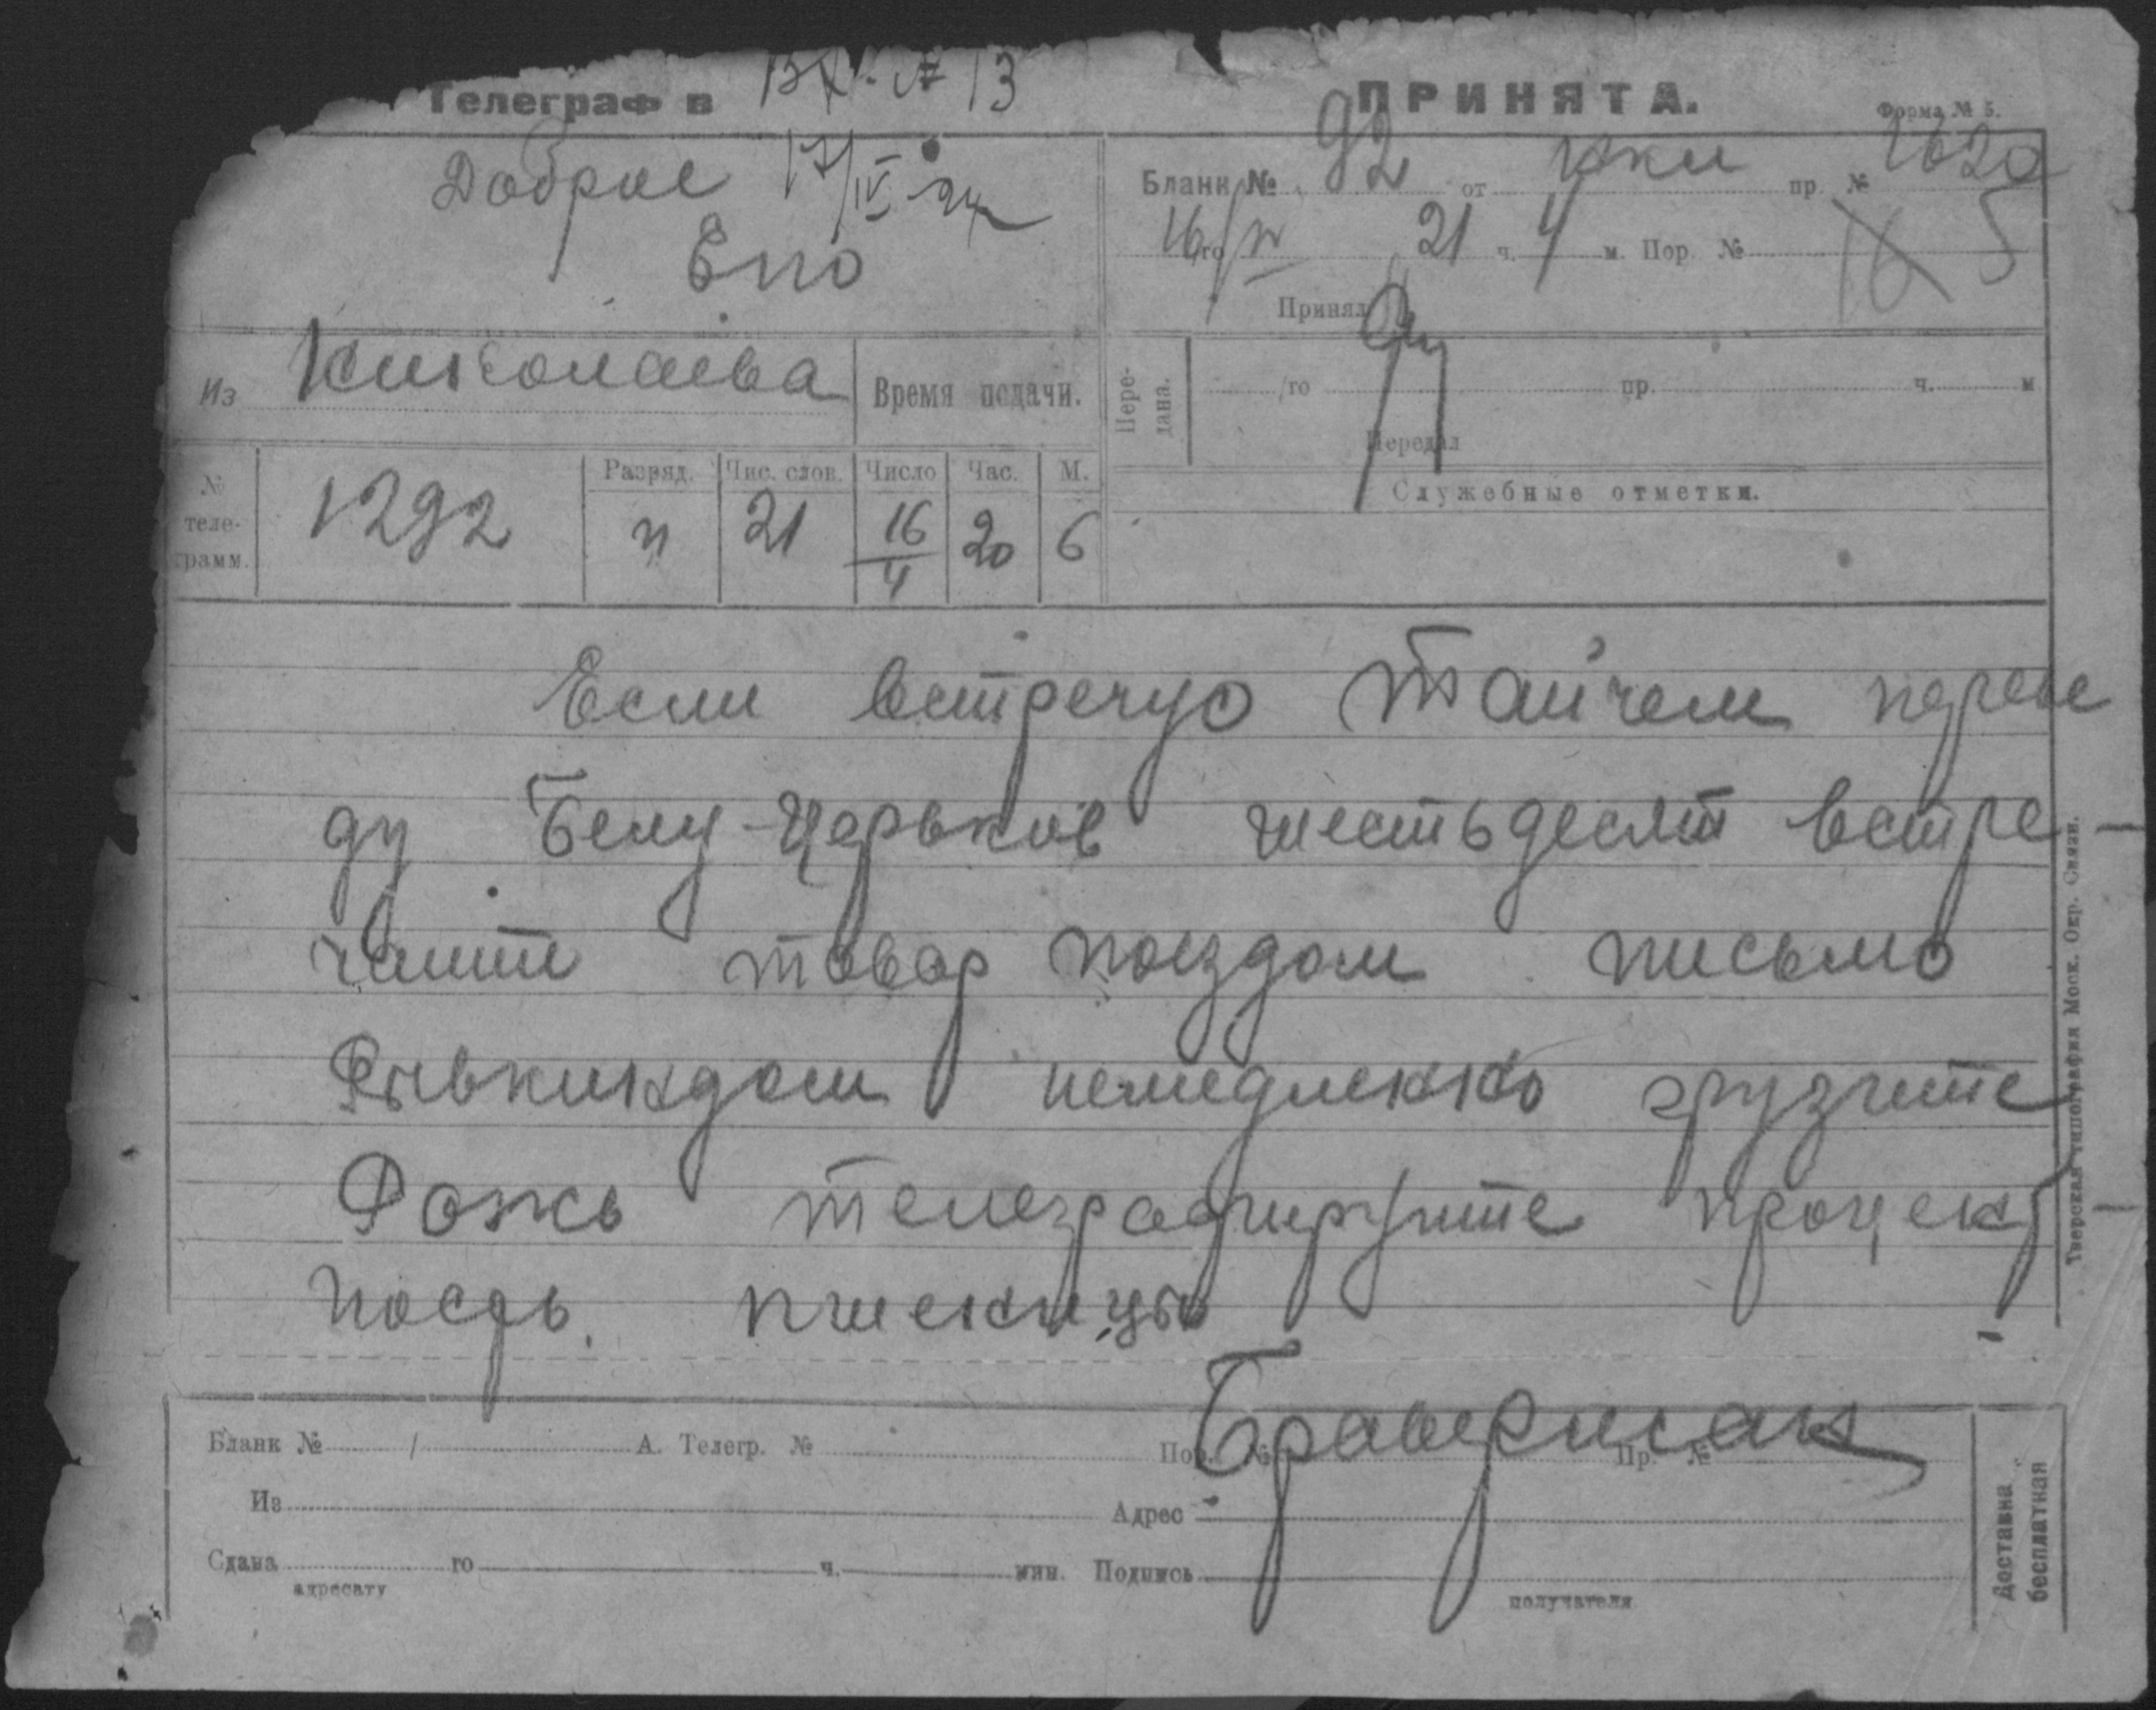 Телеграф в
13
ПРИНЯТА.
Форма № 5.
Доброе 17/IV-24
Епо
Бланк № 92 от пр. №
16/го IV 21 ч. 4 м. Пор. № 16 5
Принял
Из Николаева
Время подачи.
Пере-
дана.
/го пр. ч. м
Передал
№
теле-
грамм.
1292
Разряд. Чис. слов. Число Час. М.
п 21 16/4 20 6
Служебные отметки.
Если встречую Тайчем переве
ду Белу-Церьков шестьдесят встре-
чайте товар поездом письмо
Рывкиндом немедленно грузите
Рожь телеграфируйте процент-
ность пшеницы
Браверман
Бланк № / А. Телегр. № Пор. № Пр. №
Из Адрес
Сдана го ч. мин. Подпись
адресату получателя
Доставка
бесплатная
Тверская типография Моск. Окр. Связи.